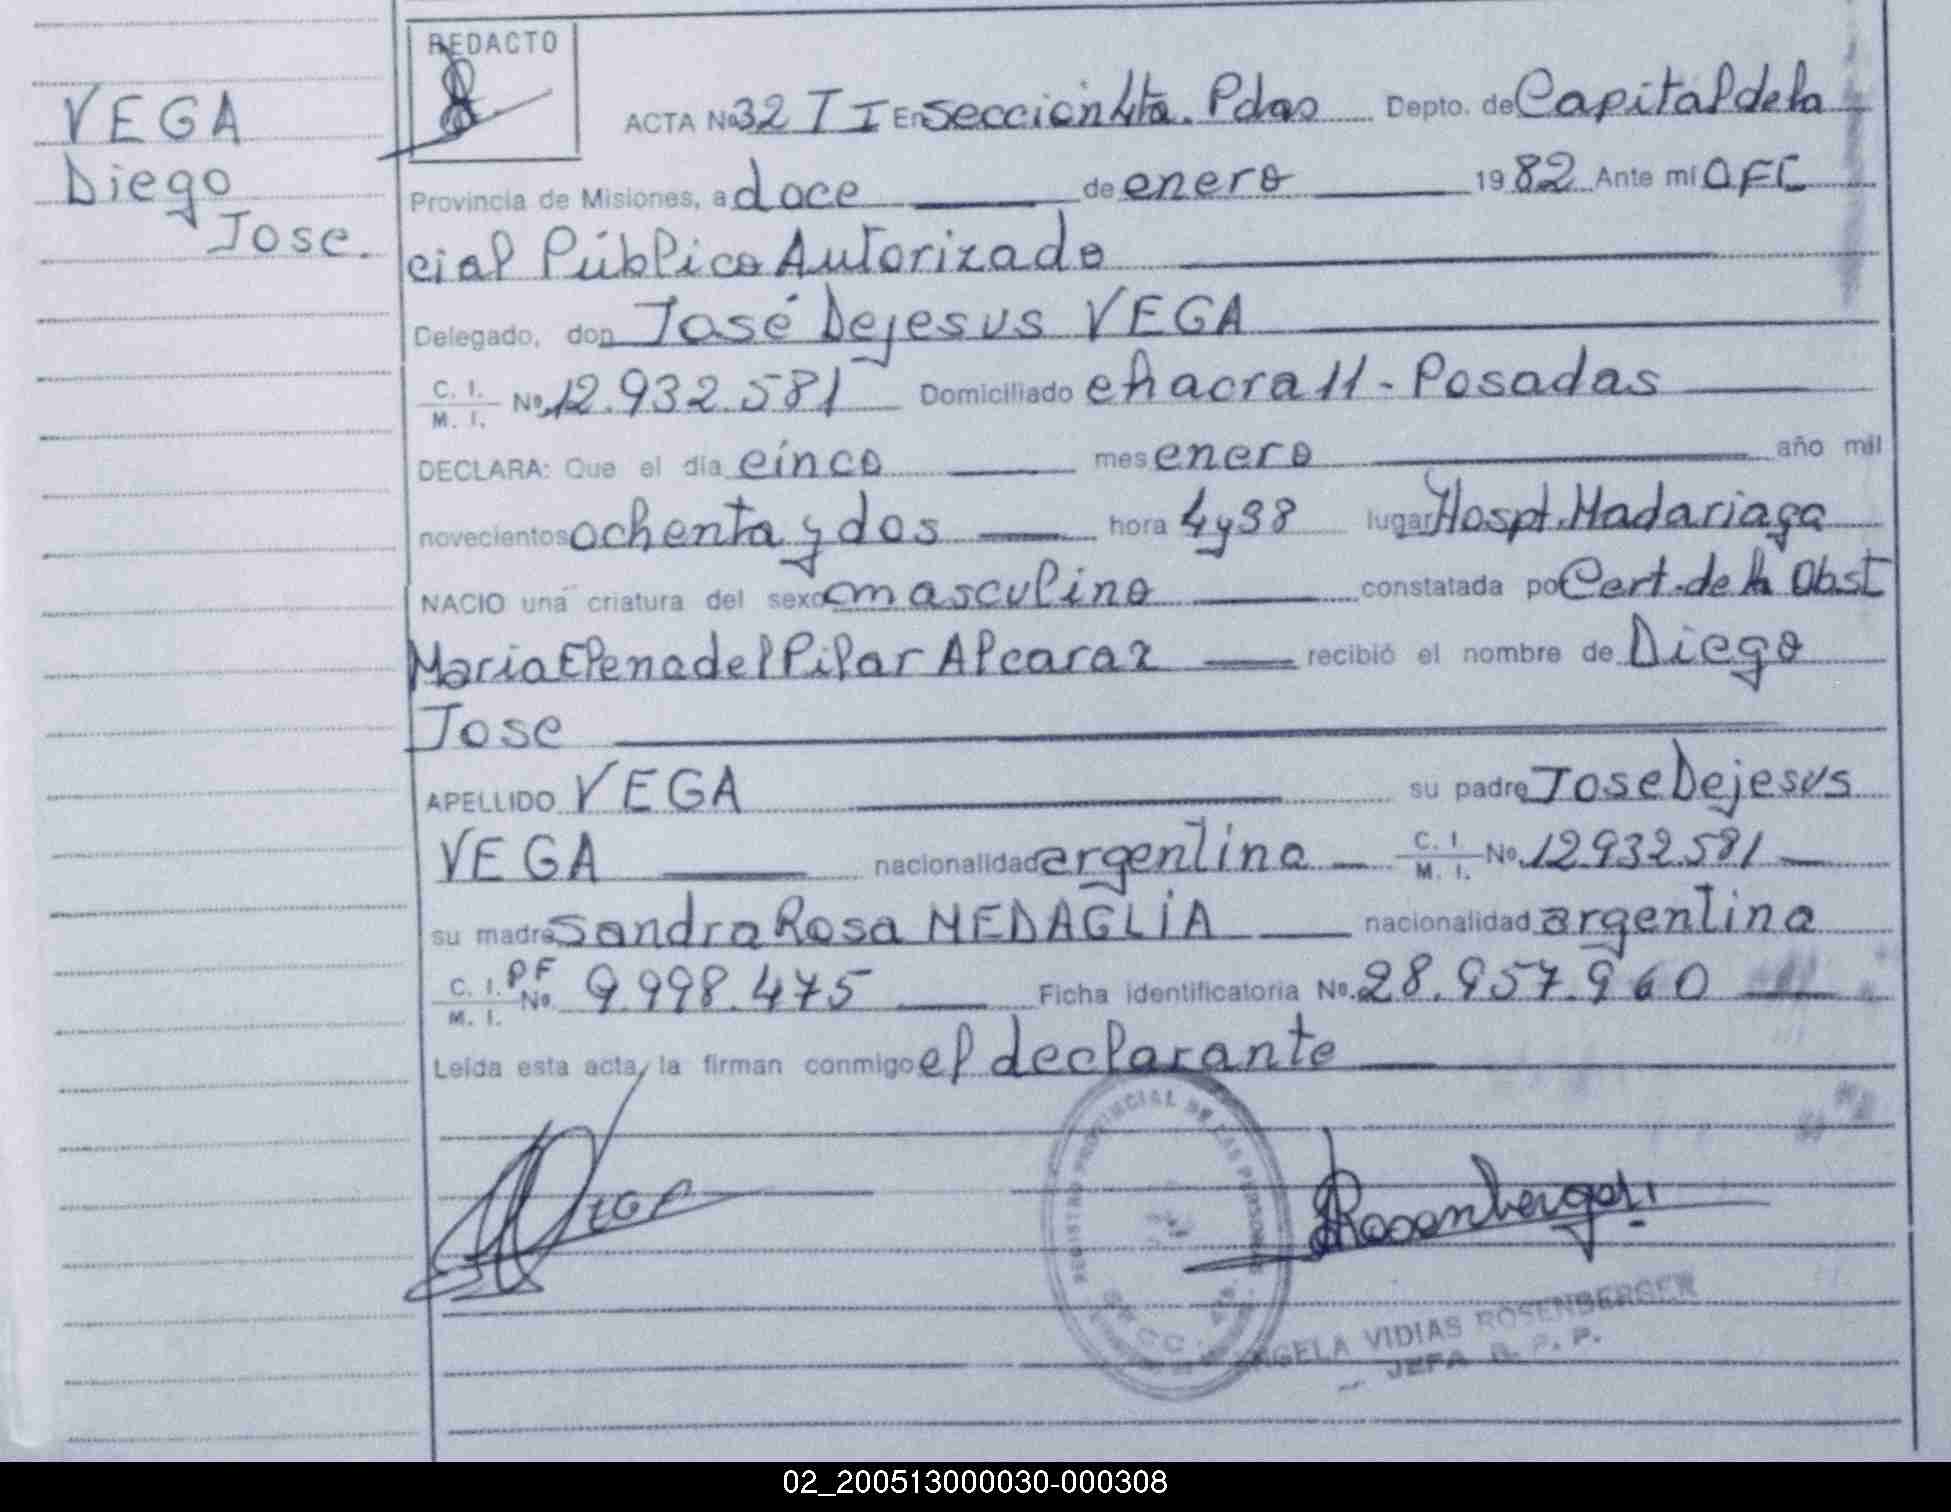 VEGA
Diego
Jose.
REDACTO
ACTA Nº 32 T I En Sección 4ta. Pdas Depto. de Capital de la
Provincia de Misiones, a doce de enero 1982 Ante mi OFI
cial Público Autorizado
Delegado, don José Dejesus VEGA
C. I. M. I. Nº 12.932.581 Domiciliado chacra 11 - Posadas
DECLARA: Que el dia cinco mes enero año mil
novecientos ochenta y dos hora 4 y 38 lugar Hospt. Madariaga
NACIO una criatura del sexo masculino constatada por Cert. de la Obst
Maria Elena del Pilar Alcaraz recibió el nombre de Diego
Jose
APELLIDO VEGA su padre Jose Dejesus
VEGA nacionalidad argentina C. I. M. I. Nº 12.932.581
su madre Sandra Rosa MEDAGLIA nacionalidad argentina
C. I. M. I. PF Nº 9.998.475 Ficha identificatoria Nº. 28.957.960
Leída esta acta, la firman conmigo el declarante
REGISTRO PROVINCIAL DE LAS PERSONAS
Rosenberger
ANGELA VIDIAS ROSENBERGER
JEFA R. P. P.
02_200513000030-000308